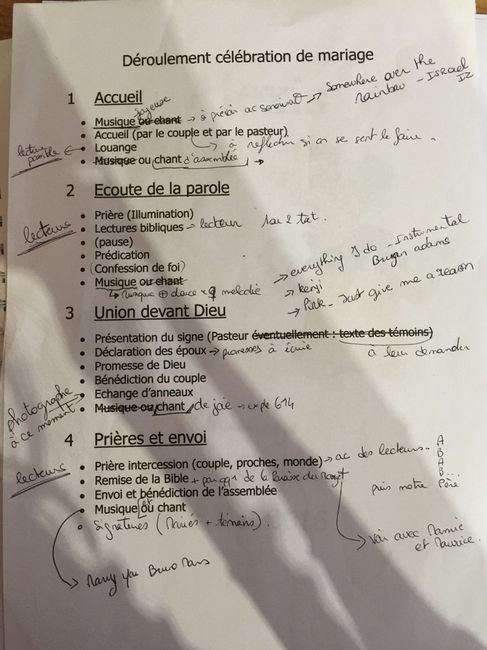 Déroulement célébration de mariage
1 Accueil
joyeuse
Musique ou chant → à prévoir ac → Somewhere over the
rainbow - ISRAEL
IZ
Accueil (par le couple et par le pasteur)
à réfléchir si on se sent le faire.
Louange
lecteurs possible
Musique ou chant d'assemblée →
2 Ecoute de la parole
Prière (Illumination)
lecteurs
Lectures bibliques → lecteur 1 ou 2 txt.
(pause)
Prédication
(Confession de foi)
Musique ou chant
↳ musique ⊕ douce mélodie
→ everything I do - Instrumental
Bryan adams
→ Kenji
→ Pink - Just give me a reason
3 Union devant Dieu
Présentation du signe (Pasteur éventuellement : texte des témoins)
à leur demander
Déclaration des époux → promesses à écrire
Promesse de Dieu
Bénédiction du couple
photographe
à ce moment
Echange d'anneaux
Musique ou chant de joie →
4 Prières et envoi
lecteurs
Prière intercession (couple, proches, monde) → ac des lecteurs..
A
B
A
B...
puis notre Père.
Remise de la Bible + par qqn de la paroisse
→ voir avec Mamie
et Maurice.
Envoi et bénédiction de l'assemblée
Musique et ou chant
Signatures (Mariés + témoins).
→ Marry you Bruno Mars